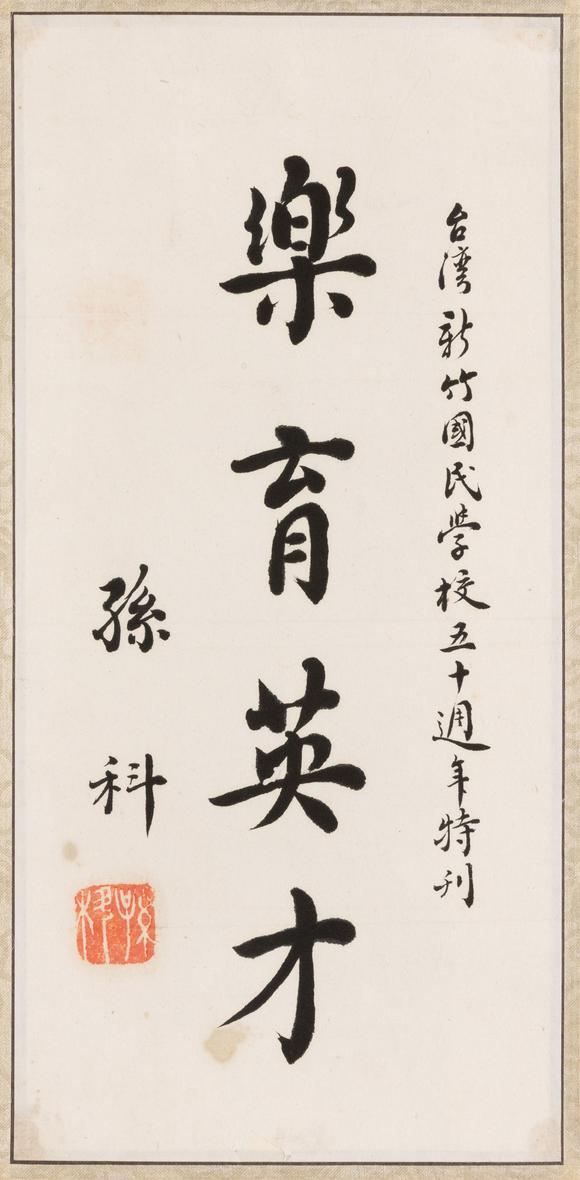 台湾新竹國民学校五十週年特刋
樂育英才
孫科
孫科